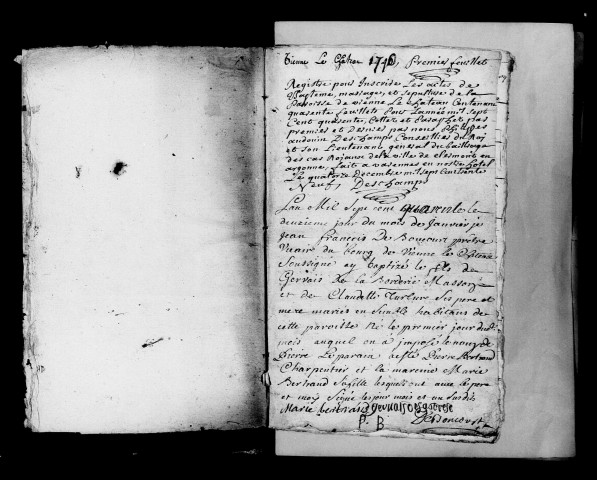 Vienne Le Chateau 1740, Premier feuillet
Registre pour Inscrire Les actes de
Baptême, mariages, et sepulture de la
Paroisse de vienne Le Chateau Contenant
quarente feuillets Pour Lannée mil sept
Cent quarente, Cottez et Paraphez par
premier et dernier par nous Philippes
andouin Des Champs Conseiller du Roj
et son Lieutenant general du bailliage
des cas Rojaux de la ville de clermont en
argonne, fait a varennes en notre hotel
Le quatorze decembre mil sept Cent trente
Neuf, Deschamps
Lan Mil Sept cent quarente le
deuzieme jour du mois de Janvier je
Jean François De Boncourt pretre
Vicair du bourg de Vienne le Chateau
Soussigné ay baptizé le fils de
Gervais De la Borderie Masson
et de Claudette Turlure Ses pere et
mere mariés en Semble habitans de
cette paroisse Né le premier jour dudit
mois auquel on a imposé le nom de
Pierre Le parain a esté Pierre Bertrand
Charpentier et la mareine Marie
Bertrand Sa fille lesquels ont avec le pere
et moy Signé les jour mois et an Susdits
Marie bertrand Gervais
P. B. De Boncourt